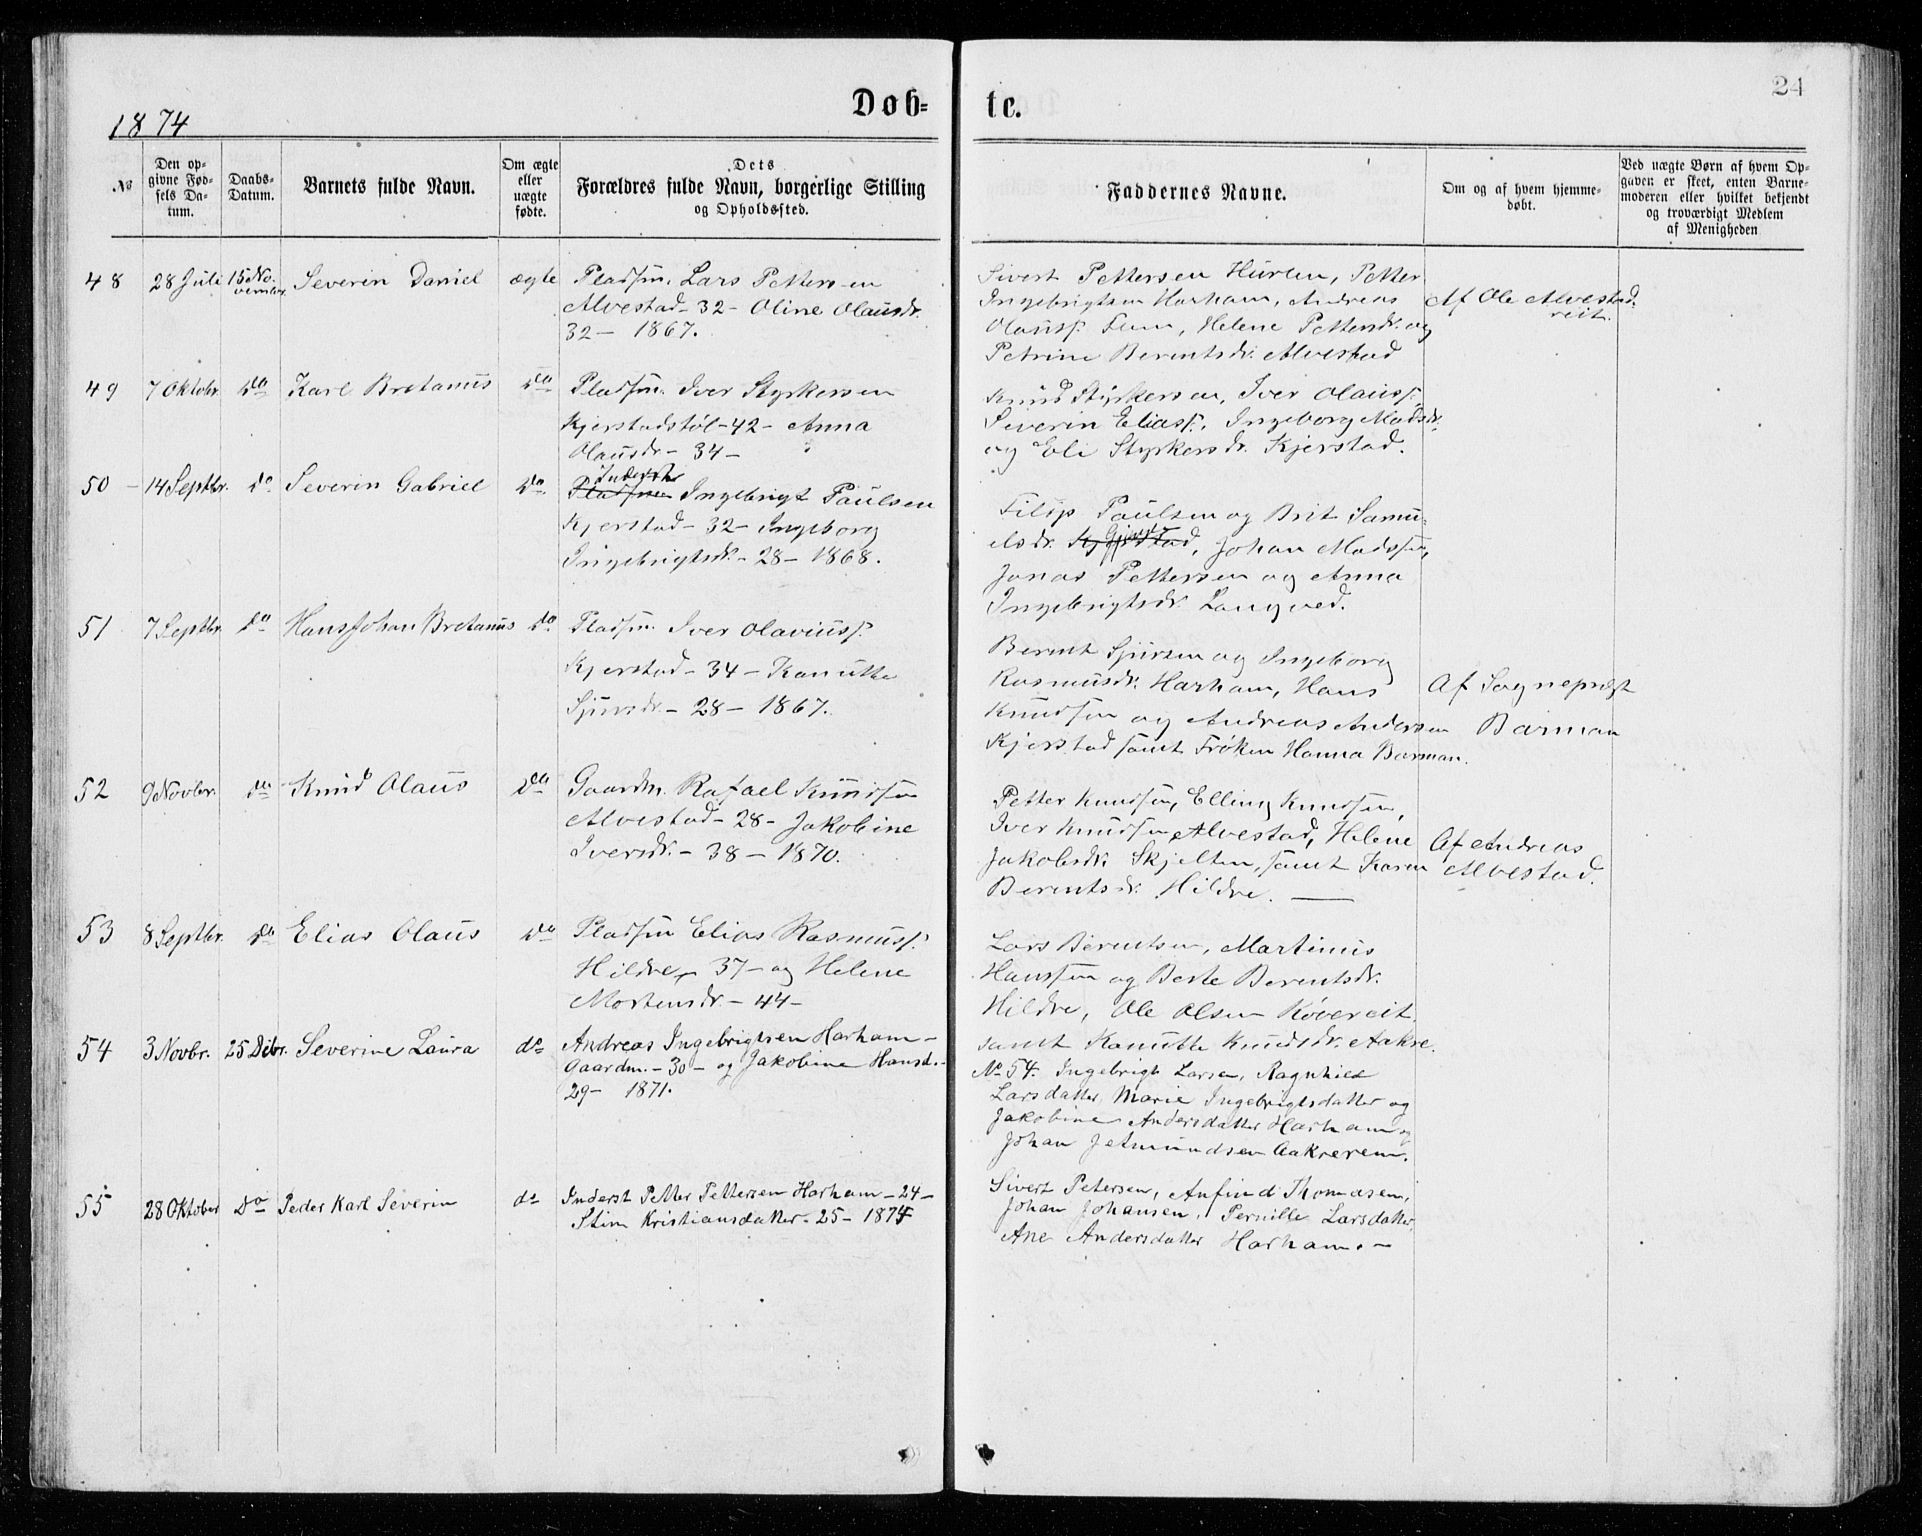 Døb-
te.
24
1874
No
Den op-
givne Fød-
sels Da-
tum.
Daabs-
Datum.
Barnets fulde Navn.
Om ægte
eller
uægte
fødte.
Dets
Forældres fulde Navn, borgerlige Stilling
og Opholdssted.
Faddernes Navne.
Om og af hvem hjemme-
døbt.
Ved uægte Børn af hvem Op-
gaven er skeet, enten Barne-
moderen eller hvilket bekjendt
og troværdigt Medlem
af Menigheden
48
28 Juli
15 No-
vember
Severin Daniel
ægte
Pladsm. Lars Pettersen
Alvestad - 32 - Oline Olausdr.
32 - 1867.
Sivert Pettersen Hurlen, Petter
Ingebrigtsen Harham, Andreas
Olauss. Flem, Helene Pettersdr. og
Petrine Berentsdr. Alvestad
Af Ole Alvestad-
reit.
49
7 Oktobr.
Do
Karl Bretanus
Do
Pladsm. Iver Styrkersen
Kjerstadstøl - 42 - Anna
Olausdr - 34 -
Knud Styrkersen, Iver Olauss.
Severin Eliass. Ingeborg Madsdr.
og Eli Styrkersdr. Kjerstad.
50
14 Septbr.
Do
Severin Gabriel
Do
Inderster
Pladsmn Ingebrigt Paulsen
Kjerstad - 32 - Ingeborg
Ingebrigtsdr. - 28 - 1868.
Filip Paulsen og Brit Samu-
elsdr. Kjerstad, Johan Madssen,
Jonas Pettersen og Anna
Ingebrigtsdr. Langved.
51
7 Septbr.
Do
Hans Johan Bretanus
Do
Pladsm. Iver Olaviuss.
Kjerstad - 34 - Kanutte
Sjursdr. - 28 - 1867.
Bernt Sjursen og Ingeborg
Rasmusdr. Harham, Hans
Knudsen og Andreas Andersen
Kjerstad samt Frøken Hanna Barman.
Af Sogneprest
Barman
52
9 Novbr.
Do
Knud Olaus
Do
Gaardm. Rafael Knudsen
Alvestad - 28 - Jakobine
Iversdr. - 38 - 1870.
Petter Knudsen, Elling Knudsen,
Iver Knudsen Alvestad, Helene
Jakobsdr. Skjelten, samt Karen
Berentsdr. Hildre.
Af Andreas
Alvestad.
53
8 Septbr.
Do
Elias Olaus
Do
Pladsm Elias Rasmuss.
Hildre - 37 - og Helene
Mortensdr. - 44 -
Lars Berentsen, Martinus
Hanssen og Berte Berentsdr.
Hildre, Ole Olsen Røvereit
samt Kanutte Knudsdr. Aakre.
54
3 Novbr.
25 Debr.
Severine Laura
do
Andreas Ingebrigtsen Harham -
Gaardm. - 30 - og Jakobine Hansd. -
29 - 1871.
No 54. Ingebrigt Larsen, Ragnhild
Larsdatter, Marie Ingebrigtsdatter og
Jakobine Andersdatter Harham og
Johan Jetmundsen Aakrerem.
55
28 Oktober
Do
Peder Karl Severin
do
Inderst Petter Pettersen Harham - 24 -
Stine Kristiansdatter - 25 - 1874
Sivert Petersen, Anfind Thomasen,
Johan Johansen, Pernille Larsdatter,
Ane Andersdatter Harham. -